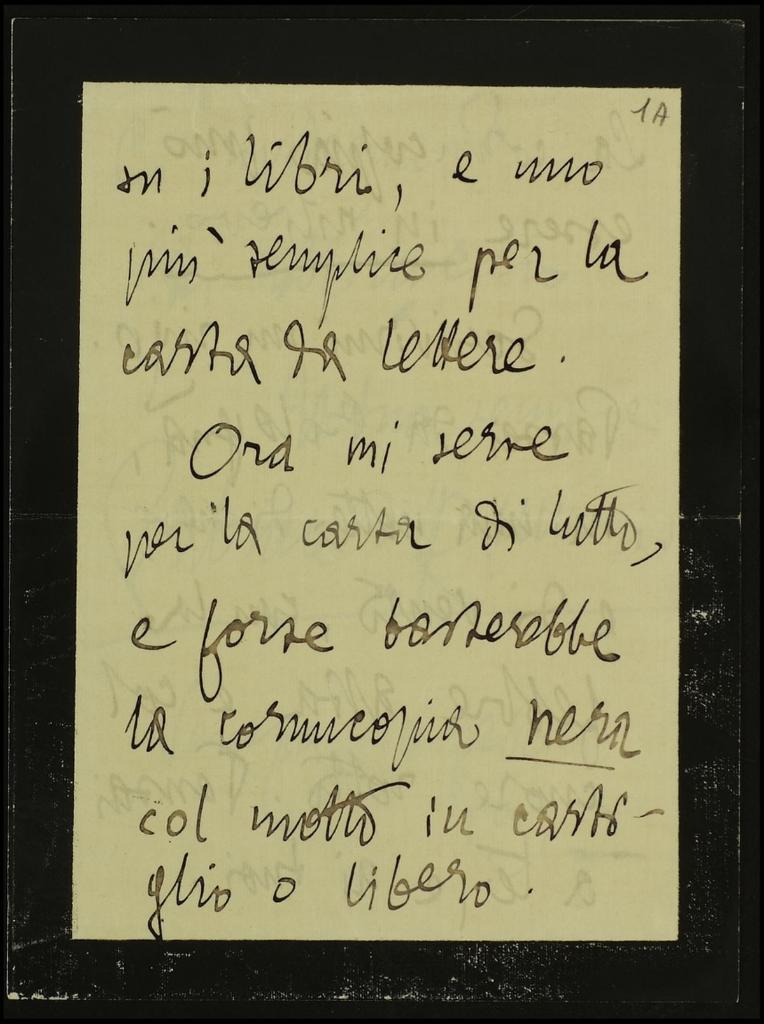 1A
su i libri, e uno
più semplice per la
carta da lettere.
Ora mi serve
per la carta di lutto,
e forse basterebbe
la cornucopia nera
col motto in carti-
glio o libero.